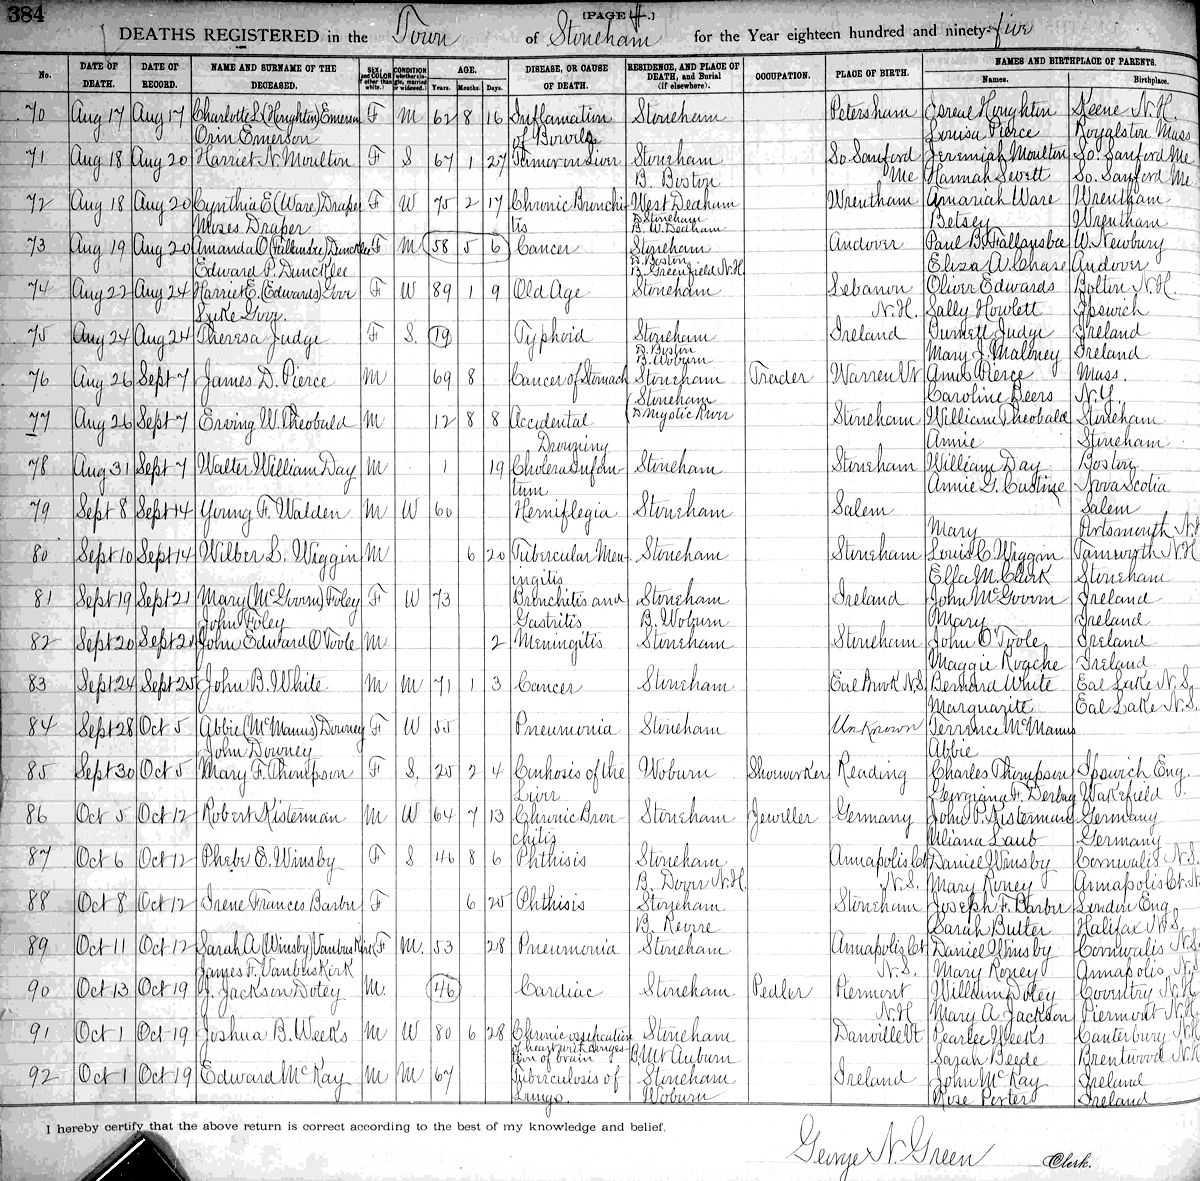 384
[PAGE 4.]
DEATHS REGISTERED in the Town of Stoneham for the Year eighteen hundred and ninety-five
No. DATE OF DEATH. DATE OF RECORD. NAME AND SURNAME OF THE DECEASED. SEX; and COLOR if other than white.) CONDITION (whether single, married or widowed.) AGE. Years. Months. Days. DISEASE, OR CAUSE OF DEATH. RESIDENCE, AND PLACE OF DEATH, and Burial (if elsewhere). OCCUPATION. PLACE OF BIRTH. NAMES AND BIRTHPLACE OF PARENTS. Names. Birthplace.
70 Aug 17 Aug 17 Charlotte L (Houghton) Emerson F M 62 8 16 Inflamation Stoneham Petersham Houghton Keene N.H.
Orin Emerson of Bowels Louisa Pierce Royalston Mass
71 Aug 18 Aug 20 Harriet N Moulton F S 67 1 27 Stoneham So Sanford Jeremiah Moulton So. Sanford Me
B. Boston Me Hannah Sevett So. Sanford Me
72 Aug 18 Aug 20 Cynthia E (Ware) Draper F W 75 2 17 Chronic Bronchi- West Dedham Wrentham Amariah Ware Wrentham
Moses Draper tis D. Stoneham Betsey Wrentham
B. W. Dedham
73 Aug 19 Aug 20 Amanda O (Fallansbee) Duncklee F M 58 5 6 Cancer Stoneham Andover Paul B. Fallansbee W. Newbury
Edward P. Duncklee D. Boston Eliza A. Chase Andover
B. Greenfield N.H.
74 Aug 22 Aug 24 Harriet E. (Edwards) Gove F W 89 1 9 Old Age Stoneham Lebanon Oliver Edwards Bolton N.H.
Luke Gove. N.H. Sally Howlett Ipswich
75 Aug 24 Aug 24 Theresa Judge F S. 19 Typhoid Stoneham Ireland Judge Ireland
D. Boston Mary J. Maloney Ireland
B. Woburn
76 Aug 26 Sept 7 James D. Pierce M 69 8 Cancer of Stomach Stoneham Treider Warren Vt Amos Pierce Mass.
Caroline Beers N.Y.
77 Aug 26 Sept 7 Erving W. Theobald M 12 8 8 Accidental Stoneham Stoneham William Theobald Stoneham
Drowning D Mystic River Annie Stoneham
78 Aug 31 Sept 7 Walter William Day M 1 19 Cholera Infan- Stoneham Stoneham William Day Boston
tum Annie G. Nova Scotia
79 Sept 8 Sept 14 Young F. Walden M W 60 Hemiflegia Stoneham Salem Salem
Mary Portsmouth N.H
80 Sept 10 Sept 14 Wilber L. Wiggin M 6 20 Tubercular Men- Stoneham Stoneham Louis C. Wiggin Tamworth N.H
ingitis Ella M. Clerk Stoneham
81 Sept 19 Sept 21 Mary (McGovern) Foley F W 73 Bronchitis and Stoneham Ireland John McGovern Ireland
John Foley Gastritis B. Woburn Mary Ireland
82 Sept 20 Sept 21 John Edward O'Toole M 2 Meningitis Stoneham Stoneham John O'Toole Ireland
Maggie Roache Ireland
83 Sept 24 Sept 25 John B. White M M 71 1 3 Cancer Stoneham Eal Brook N.S. Bernard White Eal Lake N.S.
Marguarite Eal Lake N.S.
84 Sept 28 Oct 5 Abbie (McManus) Downey F W 55 Pneumonia Stoneham Unknown Terrence McManus
John Downey Abbie
85 Sept 30 Oct 5 Mary F. Thompson F S. 25 2 4 Cirrhosis of the Woburn Shoeworker Reading Charles Thompson Ipswich Eng.
Liver Georgiana F. Derbay Wakefield
86 Oct 5 Oct 12 Robert Kisterman M W 64 7 13 Chronic Bron Stoneham Jeweller Germany John P. Kisterman Germany
chitis Uliana Laub Germany
87 Oct 6 Oct 12 Phebe E. Winsby F S 46 8 6 Phthisis Stoneham Annapolis Co Daniel Winsby Cornwalis N.S.
B. Dover N.H. N.S. Mary Roney Annapolis Ct. N.
88 Oct 8 Oct 12 Irene Frances Barber F 6 25 Phthisis Stoneham Stoneham Joseph F. Barber London Eng.
B. Revere Sarah Butler Halifax N.S.
89 Oct 11 Oct 12 Sarah A (Winsby) Vanbuskirk F M. 53 28 Pneumonia Stoneham Annapolis Co Daniel Winsby Cornwalis N.S
James F. Vanbuskirk N.S. Mary Roney Annapolis N.S
90 Oct 13 Oct 19 J. Jackson Doley M. 46 Cardiac Stoneham Pedler Piermont William Doley Coventry N.H
N.H Mary A Jackson Piermont N.H.
91 Oct 1 Oct 19 Joshua B. Weeks M W 80 6 28 Chronic ossification Stoneham Danville Vt Pearlee Weeks Canterbury N.H
of heart with conges- B. Mt Auburn Sarah Beede Brentwood N.H
tion of brain
92 Oct 1 Oct 19 Edward McKay M M 67 Tuberculosis of Stoneham Ireland John McKay Ireland
Lungs. Woburn Rose Porter Ireland
I hereby certify that the above return is correct according to the best of my knowledge and belief.
George N. Green Clerk.